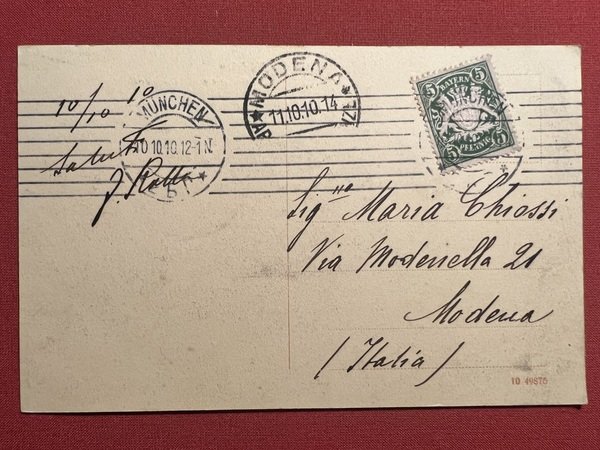 10/10 10
Saluti
J. Rotta
MÜNCHEN
10.10.10.12-1N
MODENA
11.10.10.14
BAYERN
5 5
5 PFENNIG 5
MÜNCHEN
Sig.na Maria Chiossi
Via Modenella 21
Modena
(Italia)
10 49876